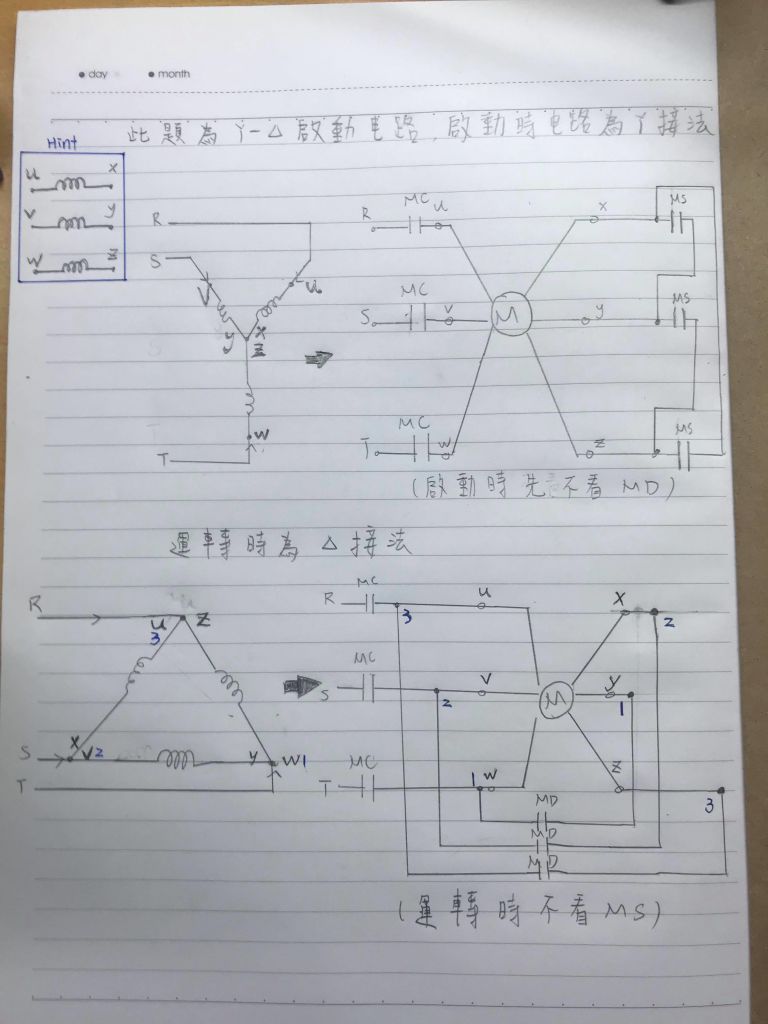 ● day ● month
此題為 Y-Δ 啟動电路,啟動時电路為 Y 接法
Hint
u x
v y
w z
R
S
V u
y x
z
W
T
R MC u x MS
S MC v M y MS
T MC w z MS
(啟動時先不看 MD)
運轉時為 Δ 接法
R
u z
3
S x v2 y w1
T
R MC 3 u x 2
S MC 2 v M y 1
T MC 1 w z 3
MD
MD
MD
(運轉時不看 MS)